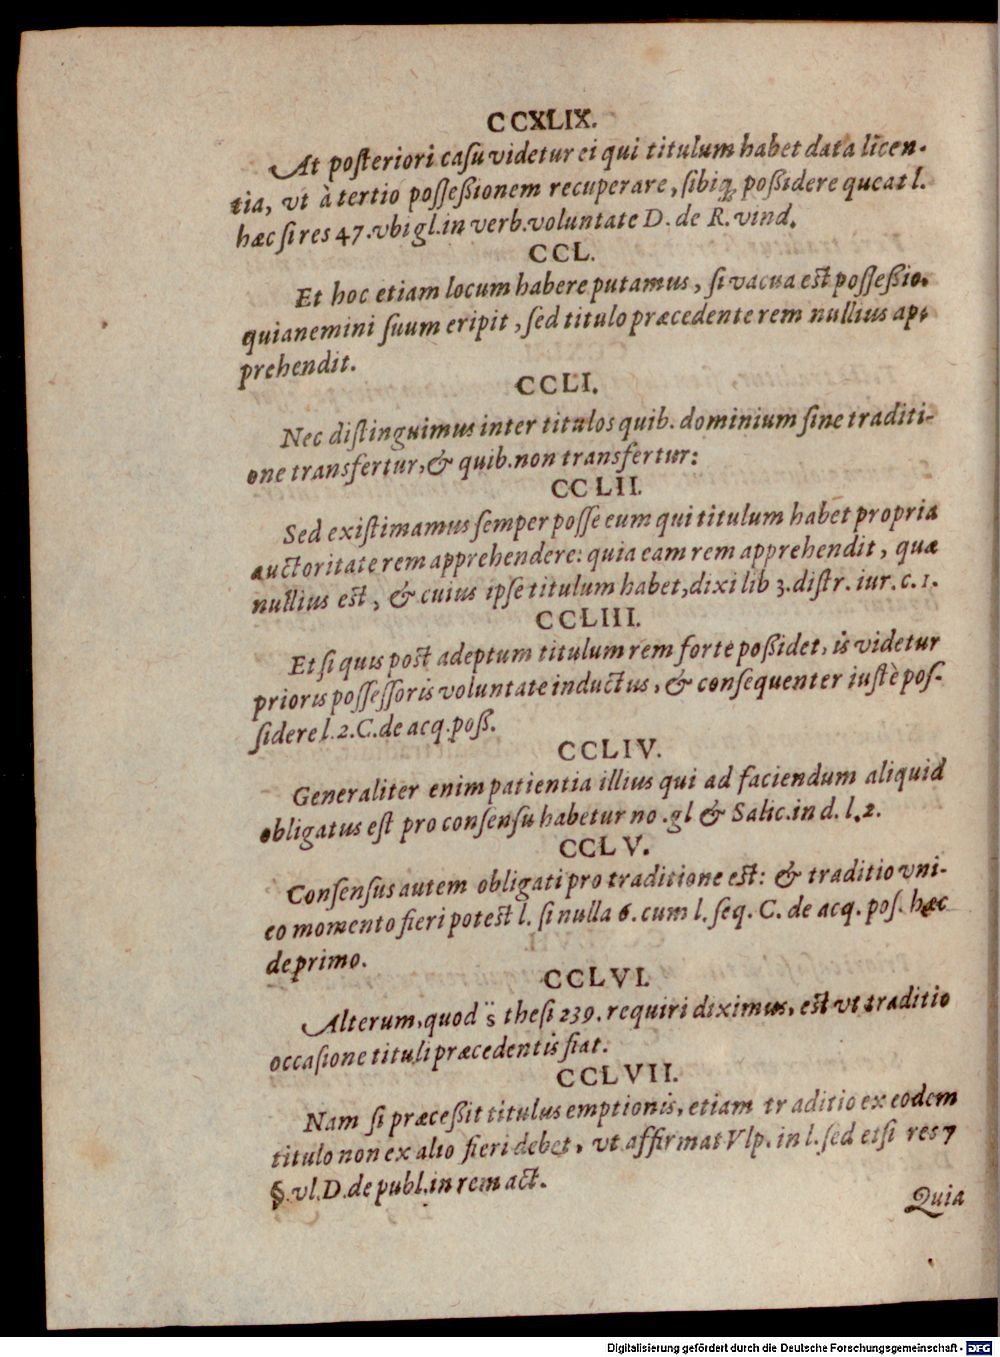 CCXLIX.
At poſteriori caſu videtur ei qui titulum habet data licen-
tia, vt à tertio poſſeßionem recuperare, ſibiq́; poßidere queat l.
hæc ſi res 47. vbi gl. in verb. voluntate D. de R. vind.
CCL.
Et hoc etiam locum habere putamus, ſi vacua eſt poſſeßio.
quia nemini ſuum eripit, ſed titulo præcedente rem nullius ap-
prehendit.
CCLI.
Nec diſtinguimus inter titulos quib. dominium ſine traditi-
one transfertur, & quib. non transfertur:
CCLII.
Sed exiſtimamus ſemper poſſe eum qui titulum habet propria
auctoritate rem apprehendere: quia eam rem apprehendit, quæ
nullius eſt, & cuius ipſe titulum habet, dixi lib 3. diſtr. iur. c. 1.
CCLIII.
Et ſi quis poſt adeptum titulum rem forte poßidet, is videtur
prioris poſſeſſoris voluntate inductus, & conſequenter iuſtè poſ-
ſidere l. 2. C. de acq. poß.
CCLIV.
Generaliter enim patientia illius qui ad faciendum aliquid
obligatus eſt pro conſenſu habetur no. gl & Salic. in d. l. 2.
CCLV.
Conſenſus autem obligati pro traditione eſt: & traditio vni-
co momento fieri poteſt l. ſi nulla 6. cum l. ſeq. C. de acq. poſ. hæc
de primo.
CCLVI.
Alterum, quod s̈ theſi 239. requiri diximus, eſt vt traditio
occaſione tituli præcedentis fiat.
CCLVII.
Nam ſi præceßit titulus emptionis, etiam traditio ex eodem
titulo non ex alio fieri debet, vt affirmat Vlp. in l. ſed etſi res 7
§. vl. D. de publ. in rem act.
Quia
Digitalisierung gefördert durch die Deutsche Forschungsgemeinschaft - DFG